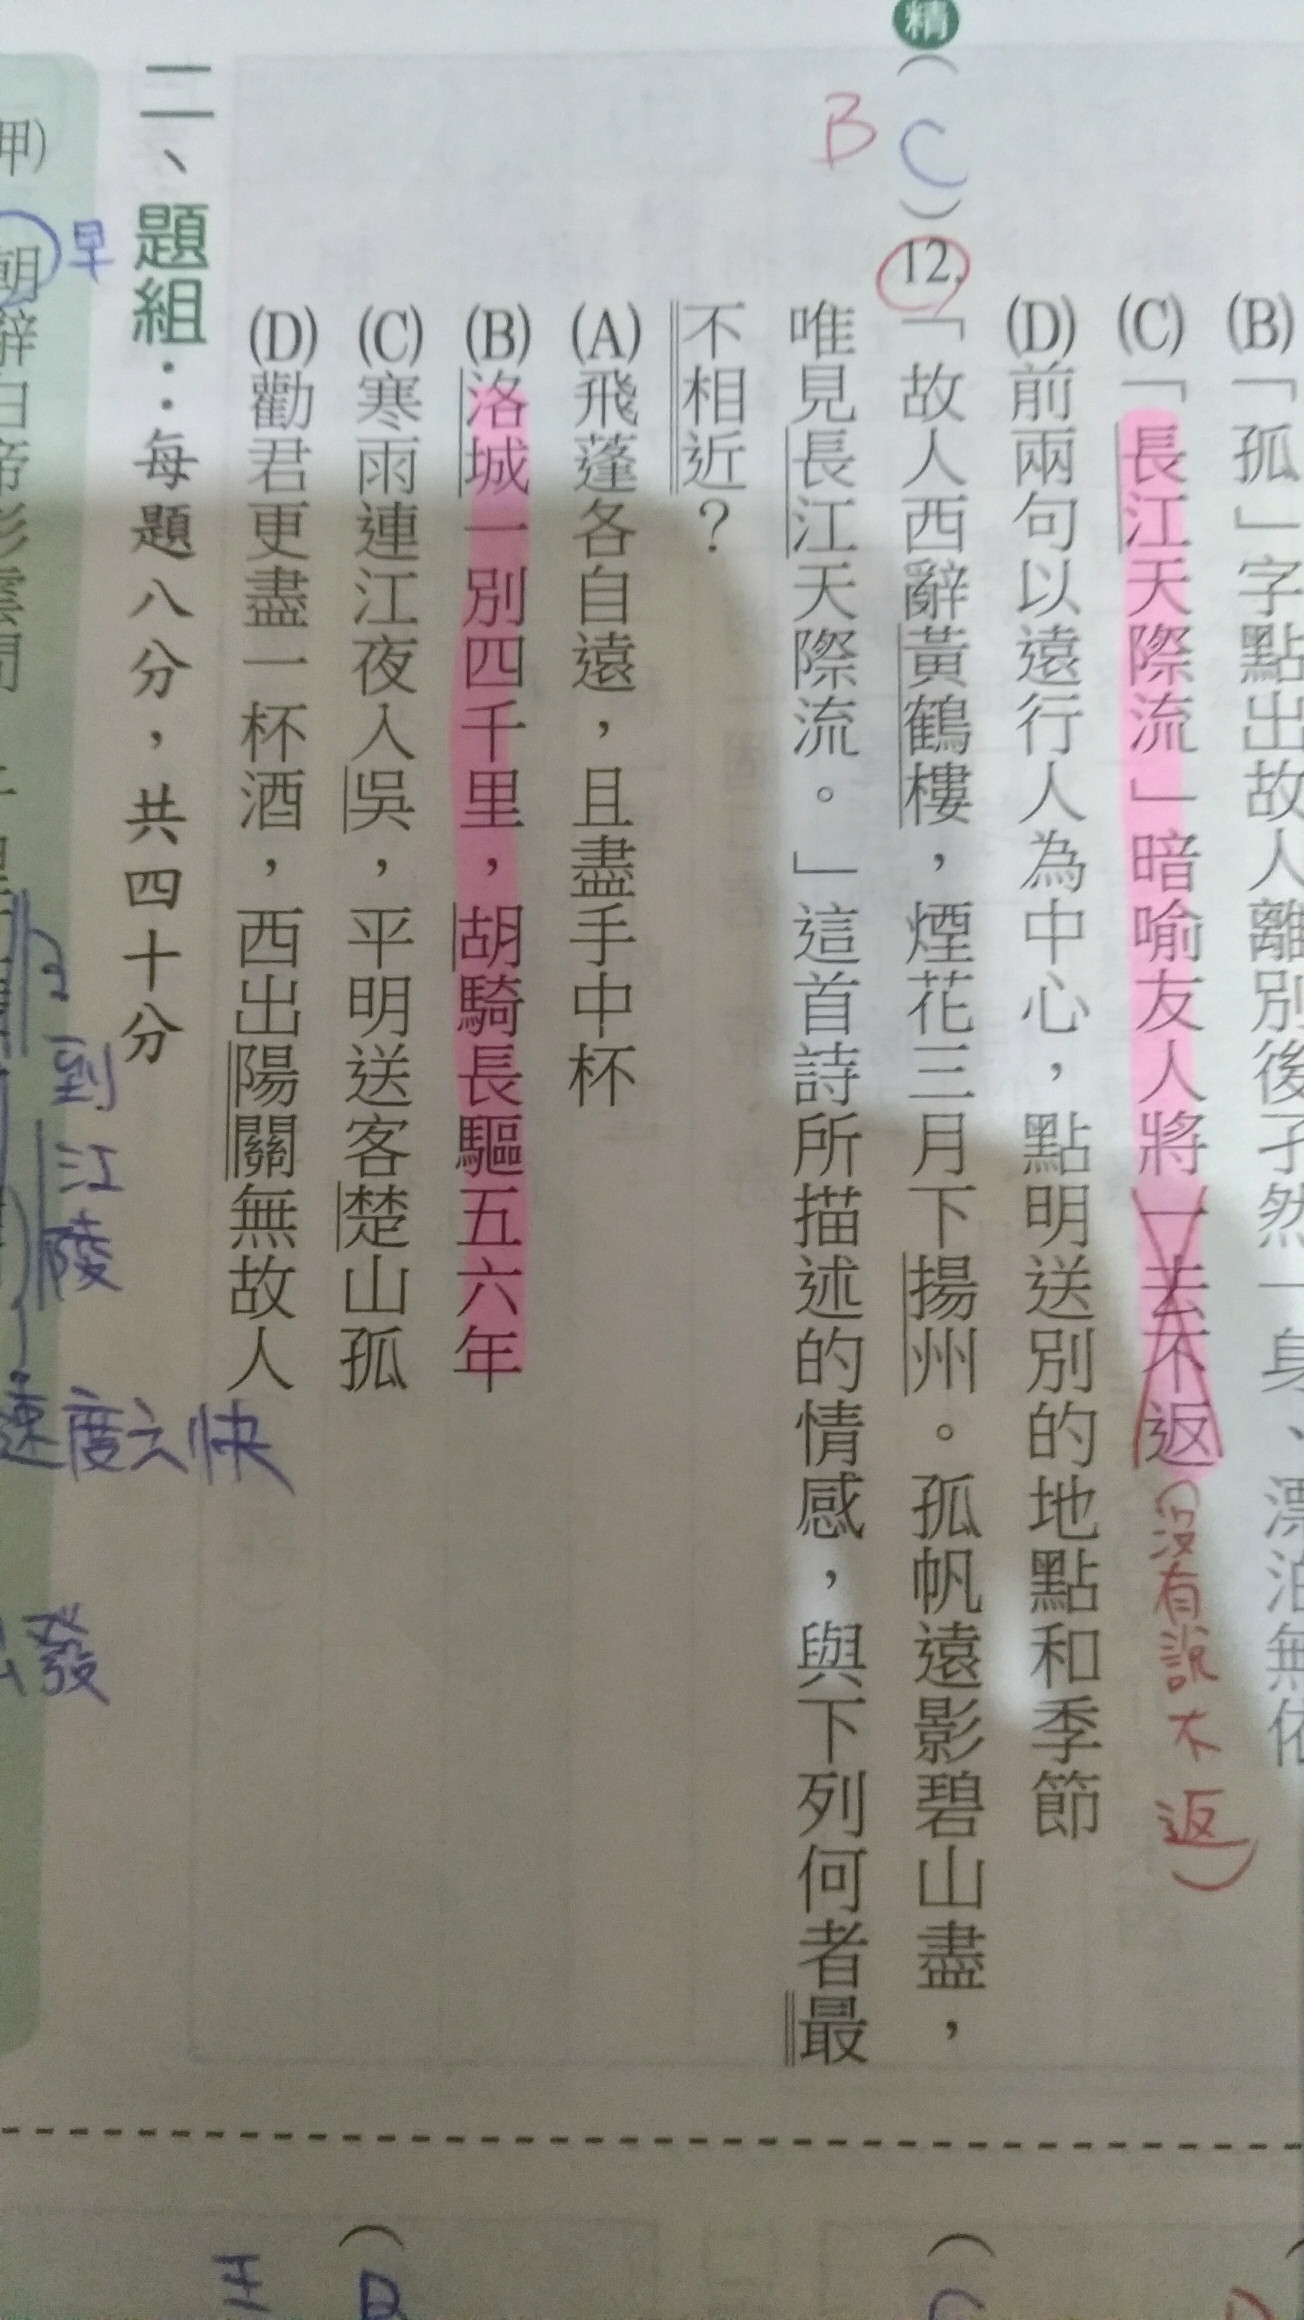 (B)「孤」字點出故人離別後孑然一身、漂泊無依
(C)「長江天際流」暗喻友人將一去不返
(沒有說不返)
(D)前兩句以遠行人為中心，點明送別的地點和季節
精
(C)12.「故人西辭黃鶴樓，煙花三月下揚州。孤帆遠影碧山盡，
B
唯見長江天際流。」這首詩所描述的情感，與下列何者最
不相近？
(A)飛蓬各自遠，且盡手中杯
(B)洛城一別四千里，胡騎長驅五六年
(C)寒雨連江夜入吳，平明送客楚山孤
(D)勸君更盡一杯酒，西出陽關無故人
二、題組：每題八分，共四十分
早
到江陵
速度云快
發
朝辭白帝彩雲間